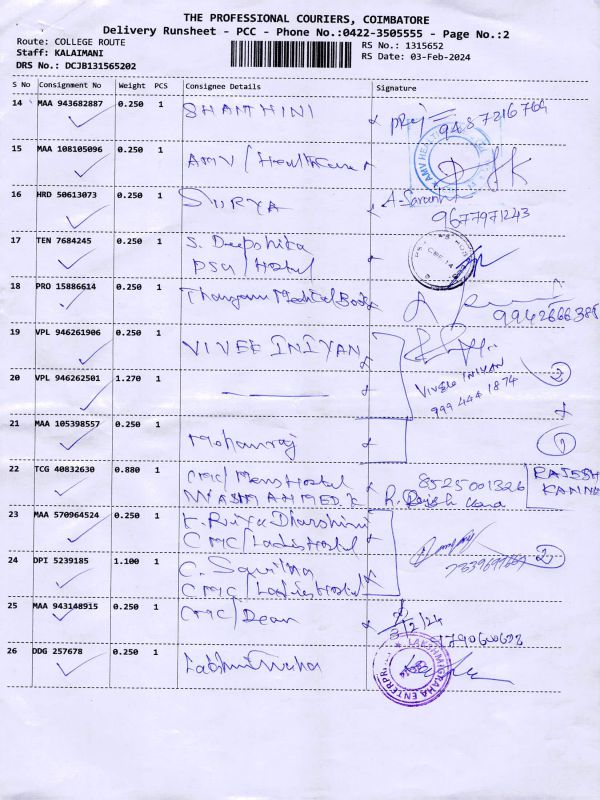 THE PROFESSIONAL COURIERS, COIMBATORE
Delivery Runsheet - PCC - Phone No.:0422-3505555 - Page No.:2
Route: COLLEGE ROUTE
RS No.: 1315652
Staff: KALAIMANI
RS Date: 03-Feb-2024
DRS No.: DCJB131565202
S No Consignment No Weight PCS Consignee Details Signature
14 MAA 943682887 0.250 1 SHANTHINI 9487216764
15 MAA 108105096 0.250 1 AMV/Healthcare
16 HRD 50613073 0.250 1 SURYA
9677971243
17 TEN 7684245 0.250 1 S. Deepshika
PSG/Hostel
18 PRO 15886614 0.250 1 Thangam Medical Book
19 VPL 946261906 0.250 1 VIVEK INIYAN
20 VPL 946262501 1.270 1 VIVEK INIYAN
999 444 1874
2
21 MAA 105398557 0.250 1 Mohanraj 1
22 TCG 40832630 0.880 1 CMC/Mens Hostel 8525001326 RAJESH
KANNE
23 MAA 570964524 0.250 1 K. Priya Dharshini
CMC/Ladies Hostel
24 DPI 5239185 1.100 1 C.
CMC/Ladies Hostel
2
25 MAA 943148915 0.250 1 CMC/Dean
26 DDG 257678 0.250 1